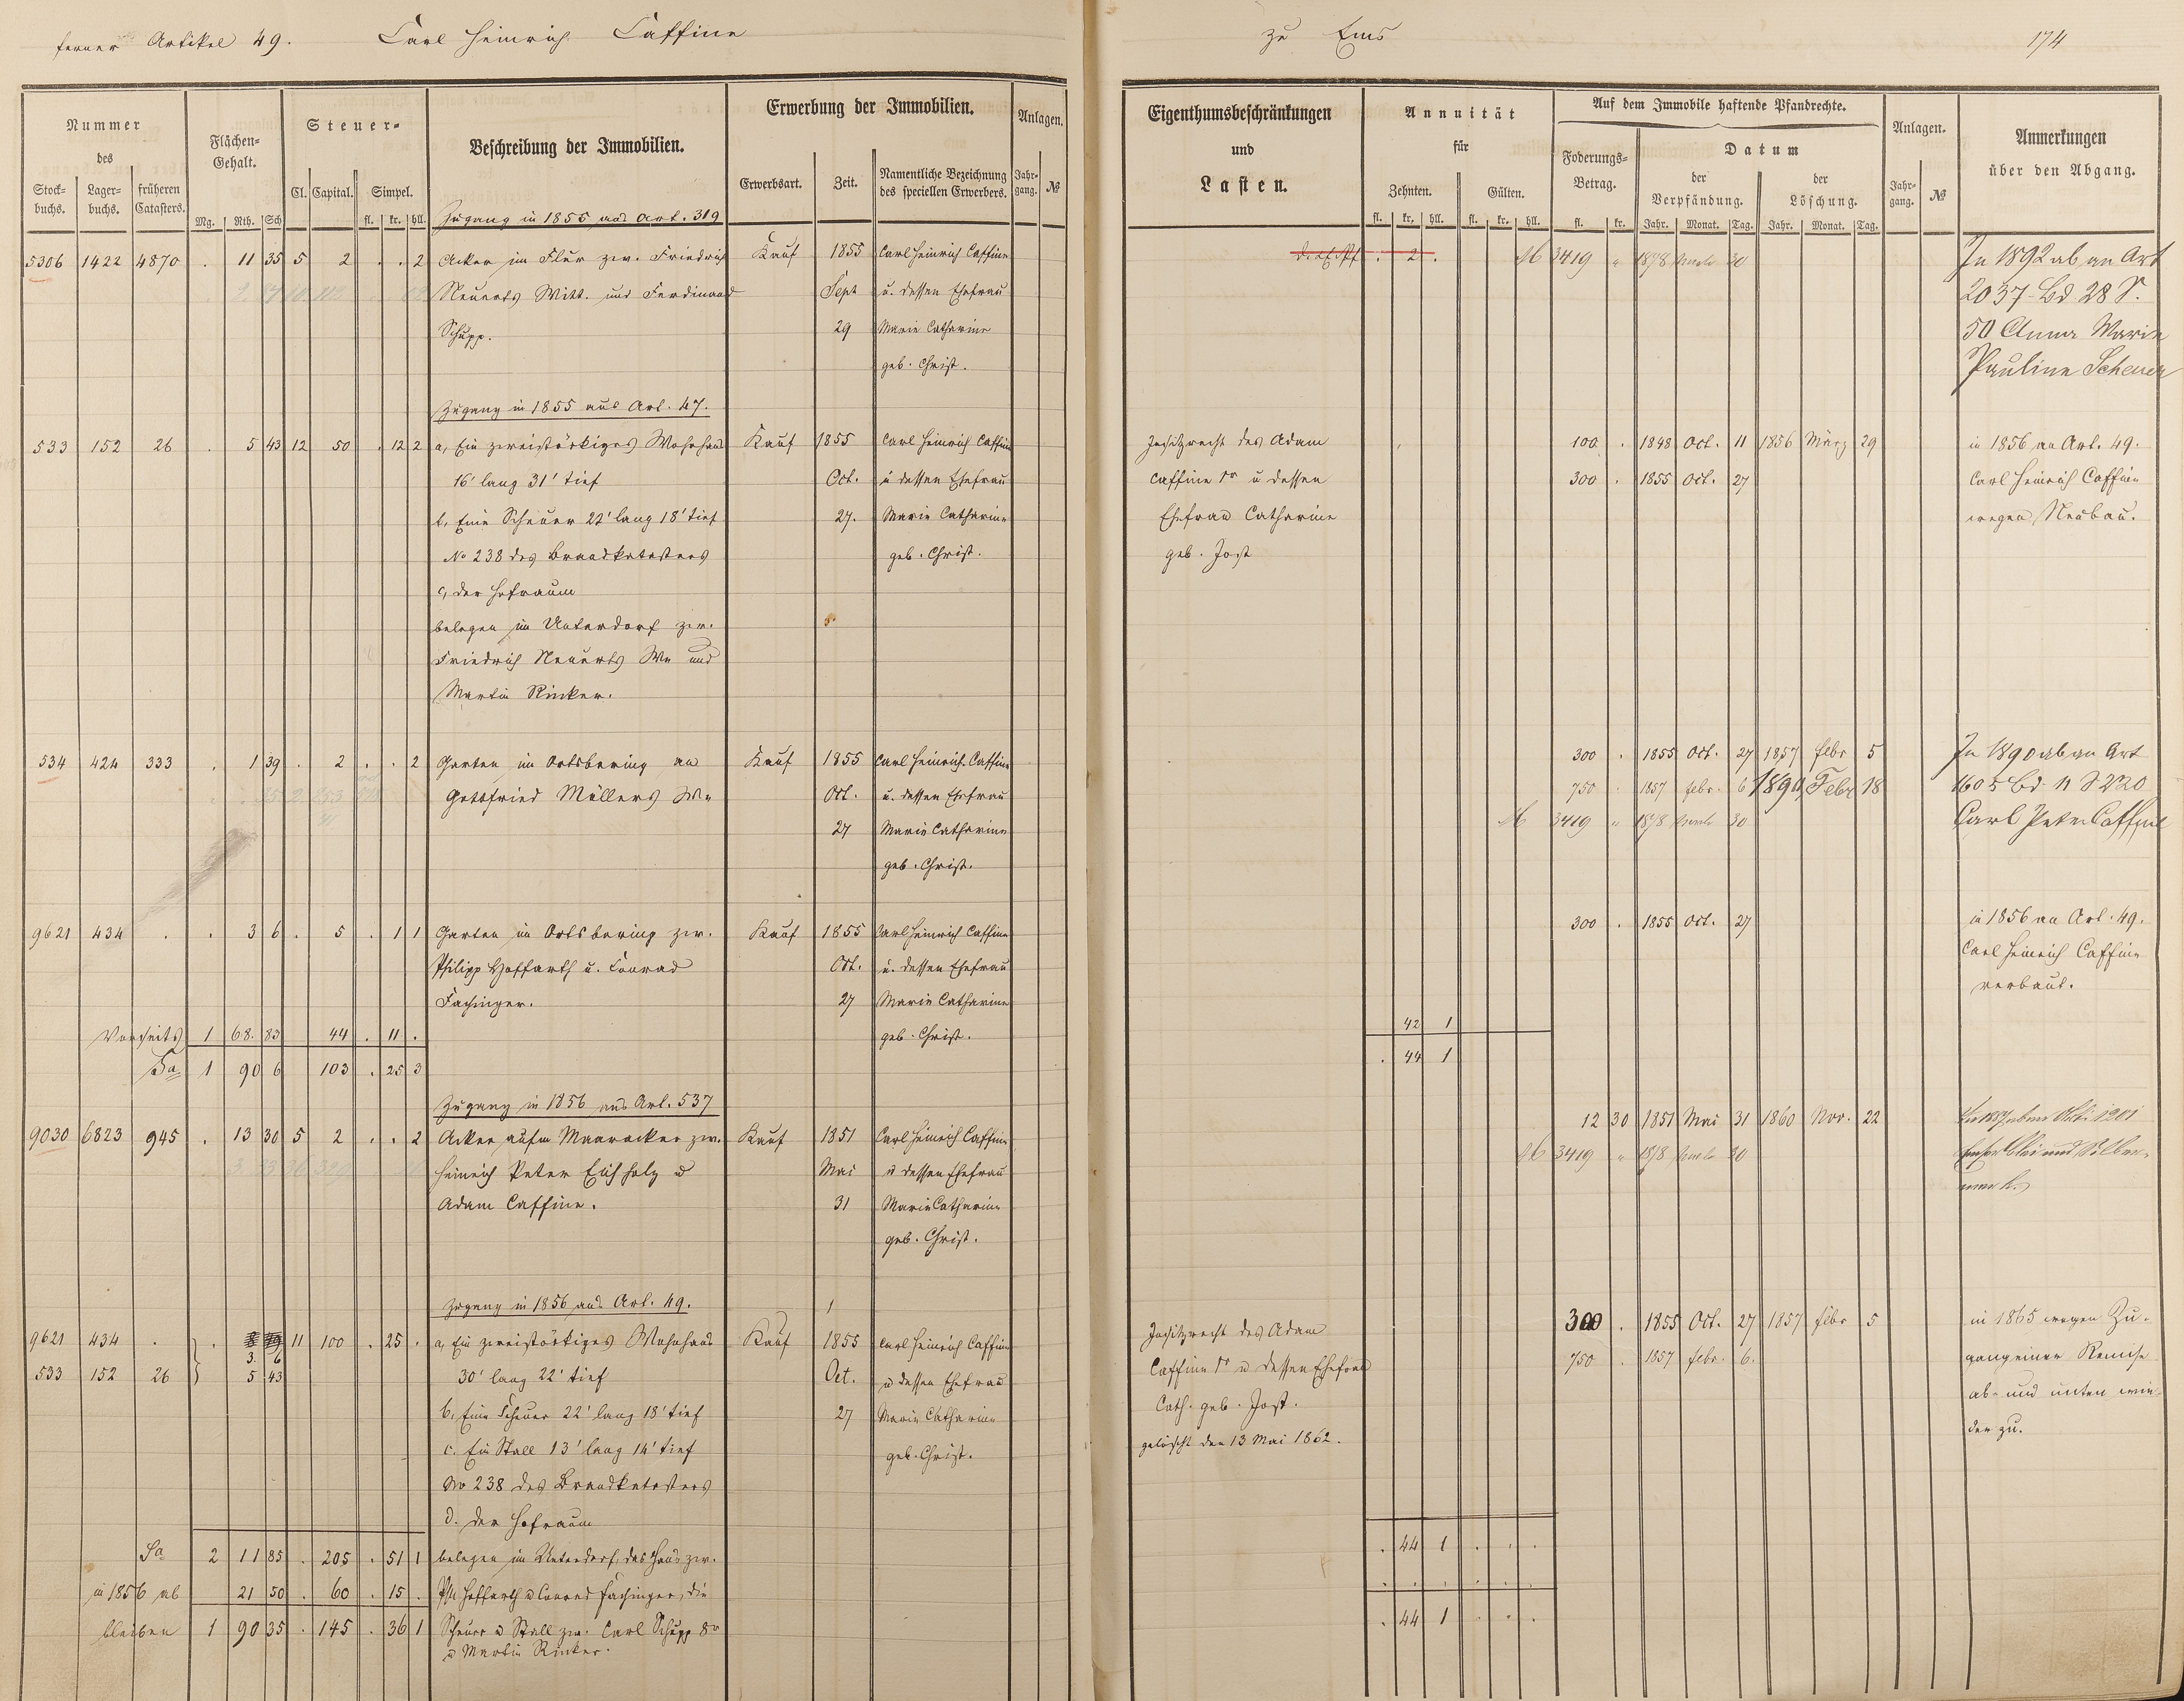 ferner Artikel 49. Carl Heinrich Caffine
zu Ems 174
Nummer des
Stockbuchs. Lagerbuchs. früheren Catasters.
Flächen-Gehalt.
Mg. Rth. Sch
Steuer-
Cl. Capital. Simpel.
fl. kr. hll.
Beschreibung der Immobilien.
Erwerbung der Immobilien.
Erwerbsart. Zeit. Namentliche Bezeichnung des speciellen Erwerbers.
Anlagen.
Jahrgang. №
Eigenthumsbeschränkungen
und
Lasten.
Annuität
für
Zehnten. Gülten.
fl. kr. hll. fl. kr. hll.
Auf dem Immobile haftende Pfandrechte.
Foderungs-Betrag.
fl. kr.
Datum
der Verpfändung. der Löschung.
Jahr. Monat. Tag. Jahr. Monat. Tag.
Anlagen.
Jahrgang. №
Anmerkungen
über den Abgang.
Zugang in 1855 aus Art. 319
5306 1422 4870 . 11 35 5 2 . . 2 Acker im Flur zw. Friedrich Kauf 1855 Carl Heinrich Caffine . 2 . 3419 " 1878 30 In 1892 ab an Art
Neuerts Witt. und Ferdinand Sept u. dessen Ehefrau 2037 Bd 28 S.
Schupp. 29 Marie Catharine 50 Anna Marie
geb. Christ. Pauline Scheuer
Zugang in 1855 aus Art. 47.
533 152 26 . 5 43 12 50 . 12 2 a, Ein zweistöckiges Wohnhaus Kauf 1855 Carl Heinrich Caffine des Adam 100 . 1848 Oct. 11 1856 März 29 in 1856 an Art. 49.
16' lang 31' tief Oct. u dessen Ehefrau Caffine 1r u dessen 300 . 1855 Oct. 27 Carl Heinrich Caffine
b, Eine Scheuer 22' lang 18' tief 27. Marie Catharine Ehefrau Catharine wegen Neubau.
No 238 des Brandkatasters geb. Christ. geb. Jost
c, der Hofraum
belegen im Unterdorf zw.
Friedrich Neuerts We und
Martin Rinker.
534 424 333 . 1 39 . 2 . . 2 Garten im Ortsbering an Kauf 1855 Carl Heinrich Caffine 300 . 1855 Oct. 27 1857 febr 5 In 1890 ab an Art
Gottfried Müllers We Oct. u. dessen Ehefrau 750 . 1857 febr. 6 1890 Febr 18 1605 Bd 11 S 220
27 Marie Catharine 3419 " 1878 30 Carl Peter Caffine
geb. Christ.
9621 434 . . 3 6 . 5 . 1 1 Garten im Ortsbering zw. Kauf 1855 Carl Heinrich Caffine 300 . 1855 Oct. 27 in 1856 an Art. 49.
Philipp Hoffarth u. Conrad Oct. u. dessen Ehefrau Carl Heinrich Caffine
Fachinger. 27 Marie Catharine verbaut.
Vorseits 1 68. 83 44 . 11 . geb. Christ. 42 1
Sa 1 90 6 103 . 25 3 . 44 1
Zugang in 1856 aus Art. 537
9030 6823 945 . 13 30 5 2 . . 2 Acker aufm Maaracker zw. Kauf 1851 Carl Heinrich Caffine 12 30 1851 Mai 31 1860 Nov. 22
Heinrich Peter Eichholz u Mai u dessen Ehefrau 3419 " 1878 30
Adam Caffine. 31 Marie Catharine
geb. Christ.
Zugang in 1856 aus Art. 49.
9621 434 . . 3. 6 11 100 . 25 . a, Ein zweistöckiges Wohnhaus Kauf 1855 Carl Heinrich Caffine des Adam 300 . 1855 Oct. 27 1857 febr 5 in 1865 wegen Zu-
533 152 26 5 43 30' lang 22' tief Oct. u dessen Ehefrau Caffine 1r u dessen Ehefrau 750 . 1857 febr. 6. gang einer Remise
b, Eine Scheuer 22' lang 18' tief 27 Marie Catharine Cath. geb. Jost. ab- und unten wie-
c. Ein Stall 13' lang 14' tief geb. Christ. gelöscht den 13 Mai 1862. der zu.
No 238 des Brandkatasters
d. der Hofraum
Sa 2 11 85 . 205 . 51 1 belegen im Unterdorf, das Haus zw. . 44 1 . . .
in 1856 ab 21 50 . 60 . 15 . Ph. Hoffarth u Conrad Fachinger, die
bleiben 1 90 35 . 145 . 36 1 Scheuer u Stall zw. Carl Schupp 8r . 44 1 . . .
u Martin Rinker.